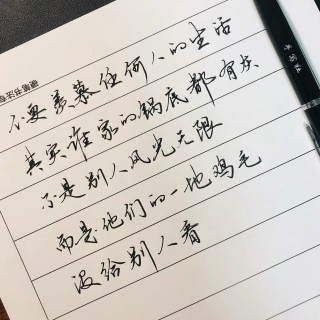 不要羡慕任何人的生活
其实谁家的锅底都有灰
不是别人风光无限
而是他们的一地鸡毛
没给别人看